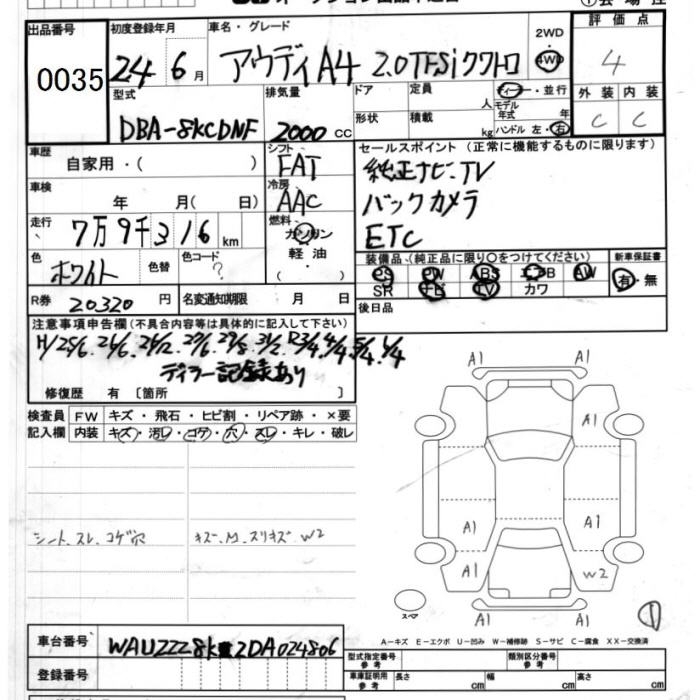 出品番号 0035
初度登録年月 24 6月
車名・グレード アウディA4 2.0TFSiクワトロ
2WD 4WD
評価点 4
外装 内装
C C
型式 DBA-8KCDNF
排気量 2000 cc
ドア 形状
定員 人 積載 kg
ディーラー・並行
モデル年式 年
ハンドル 左・右
車歴 自家用・( )
シフト FAT
冷房 AAC
セールスポイント (正常に機能するものに限ります)
純正ナビ.TV
バックカメラ
ETC
車検 年 月( 日)
走行 7万9千316 km
燃料 ガソリン
軽油・
( )
色 ホワイト 色替 色コード ?
装備品 (純正品に限り○をつけてください)
新車保証書
PS PW ABS エアB AW 有・無
SR ナビ TV カワ
R券 20320 円 名変通知期限 月 日
後日品
注意事項申告欄(不具合内容等は具体的に記入して下さい)
H/25/6.26/6.26/12.27/6.29/8.31/2.R3/4.4/4.5/4.6/4
ディラー記録簿あり
修復歴 有 〔箇所 〕
検査員記入欄
FW キズ・飛石・ヒビ割・リペア跡・×要
内装 キズ・汚レ・コゲ・穴・スレ・キレ・破レ
シート.スレ.コゲ穴
キズ.M.スリキズ.W2
A1 A1
A1
A1 A1
A1 W2
A1 A1
スペア
1
A-キズ E-エクボ U-凹み W-補修跡 S-サビ C-腐食 XX-交換済
車台番号 WAUZZZ8K2DA024806
登録番号
型式指定番号 参考 類別区分番号 参考
車庫証明用 参考 長さ cm 幅 cm 高さ cm